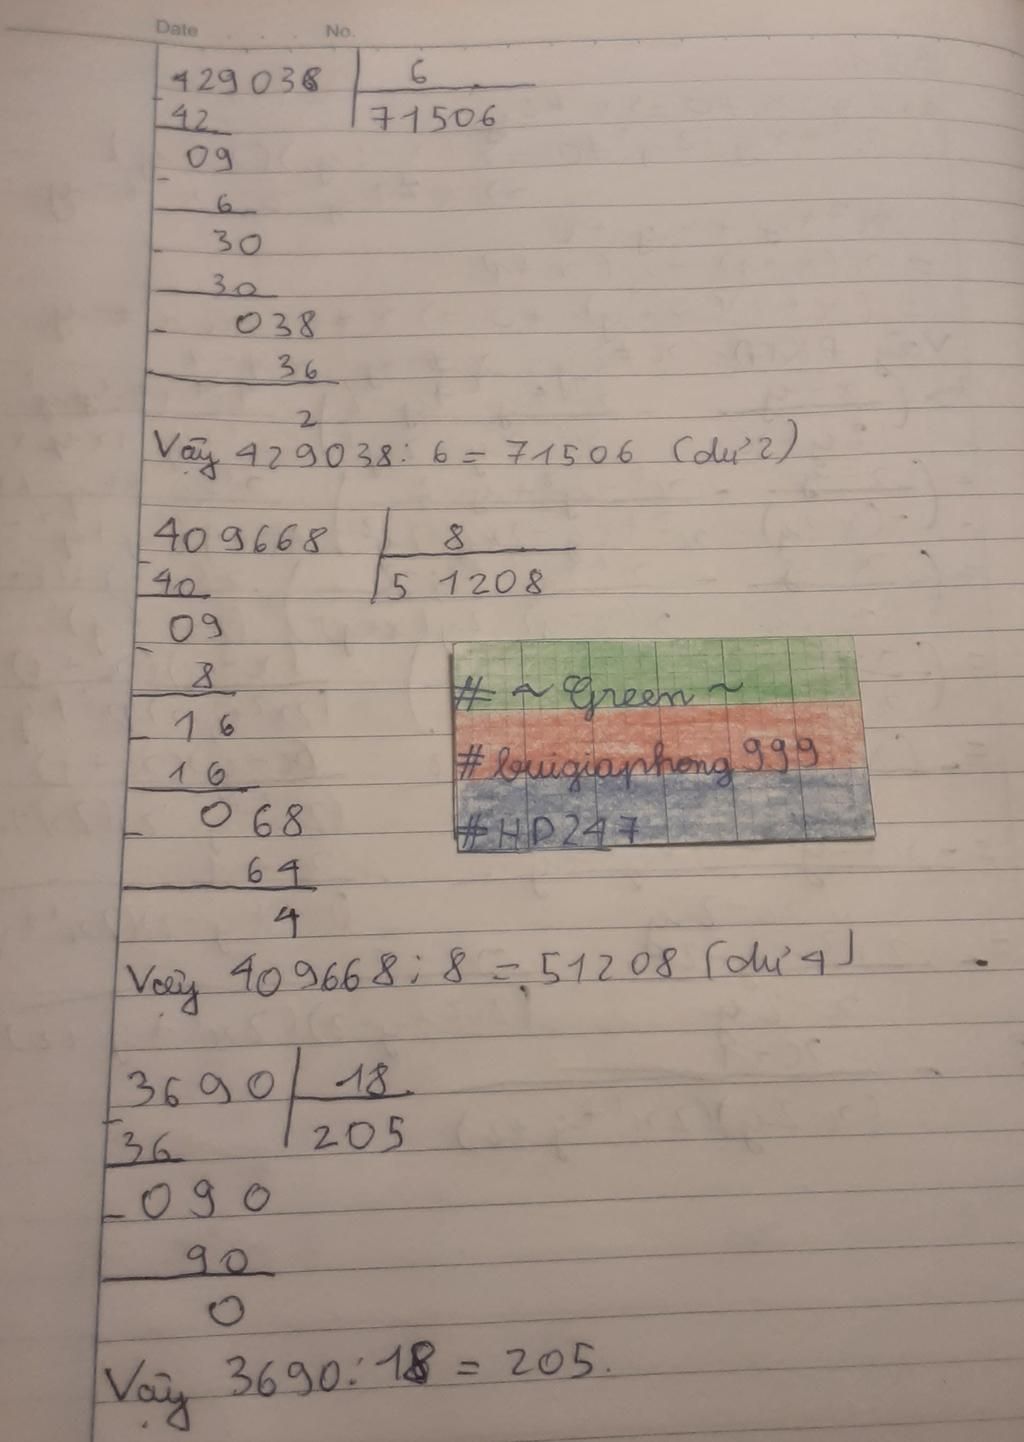 Date No.
429038 6
42 71506
09
6
30
30
038
36
2
Vậy 429038 : 6 = 71506 (dư 2)
409668 8
40 51208
09
8
16
16
068
64
4
Vậy 409668 : 8 = 51208 (dư 4)
# ~ Green ~
# buigiaphong999
# HD247
3690 18
36 205
090
90
0
Vậy 3690 : 18 = 205.